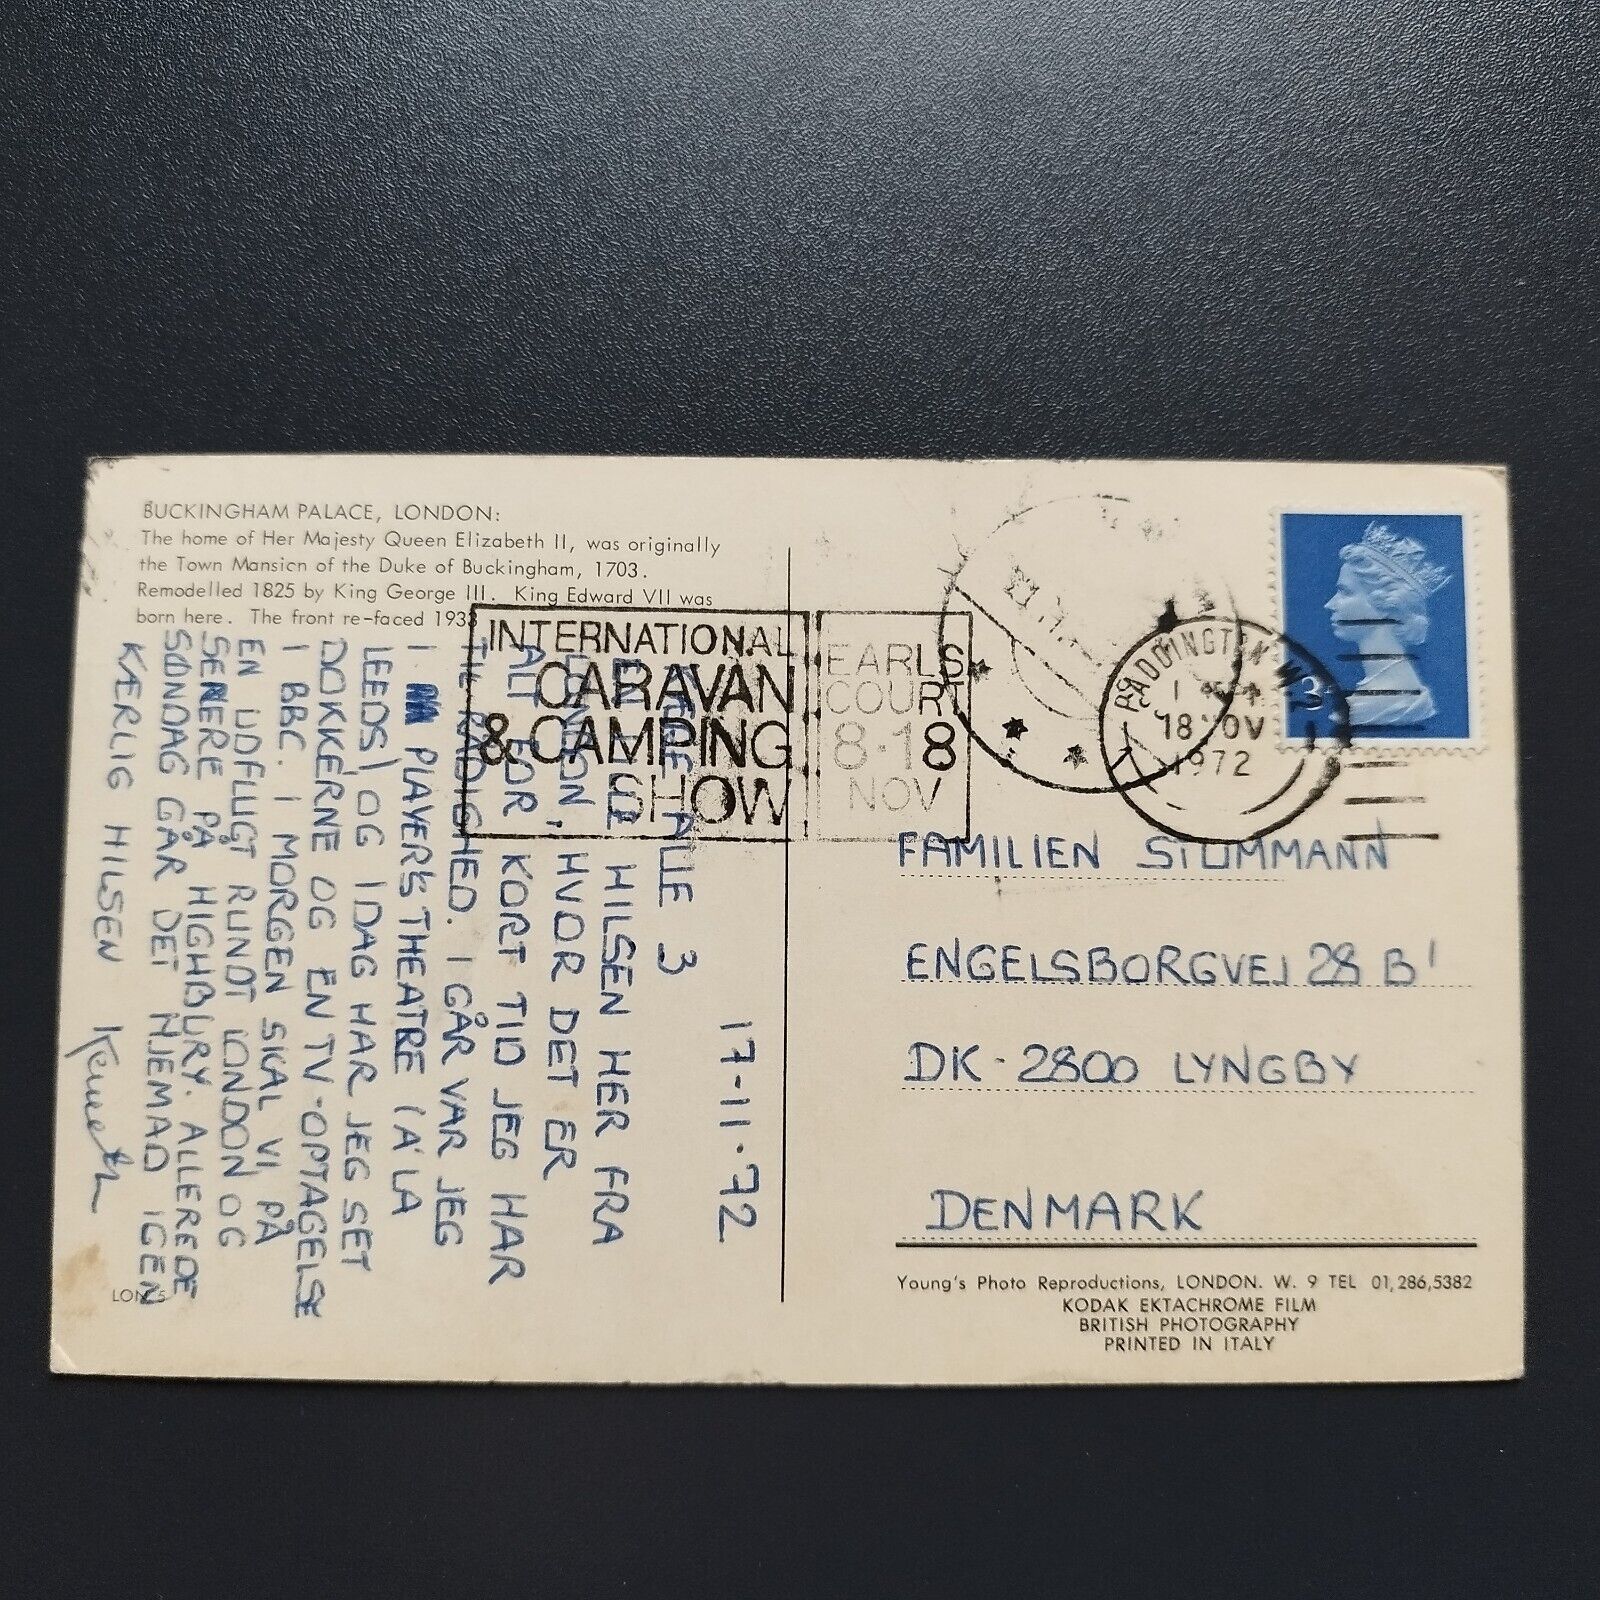 BUCKINGHAM PALACE, LONDON:
The home of Her Majesty Queen Elizabeth II, was originally
the Town Mansion of the Duke of Buckingham, 1703.
Remodelled 1825 by King George III. King Edward VII was
born here. The front re-faced 1933
INTERNATIONAL
CARAVAN
& CAMPING
SHOW
EARLS
COURT
8-18
NOV
PADDINGTON W2
18 NOV
1972
17-11-72
KÆRE ALLE 3
EN LILLE HILSEN HER FRA
LONDON, HVOR DET ER
ALT FOR KORT TID JEG HAR
TIL RÅDIGHED. I GÅR VAR JEG
I PLAYER'S THEATRE (A' LA
LEEDS) OG IDAG HAR JEG SET
DOKKERNE OG EN TV-OPTAGELSE
I BBC. I MORGEN SKAL VI PÅ
EN UDFLUGT RUNDT LONDON OG
SENERE PÅ HIGHBURY. ALLEREDE
SØNDAG GÅR DET HJEMAD IGEN
KÆRLIG HILSEN Kenneth
FAMILIEN
ENGELSBORGVEJ 28 B'
DK-2800 LYNGBY
DENMARK
Young's Photo Reproductions, LONDON. W. 9 TEL 01,286,5382
KODAK EKTACHROME FILM
BRITISH PHOTOGRAPHY
PRINTED IN ITALY